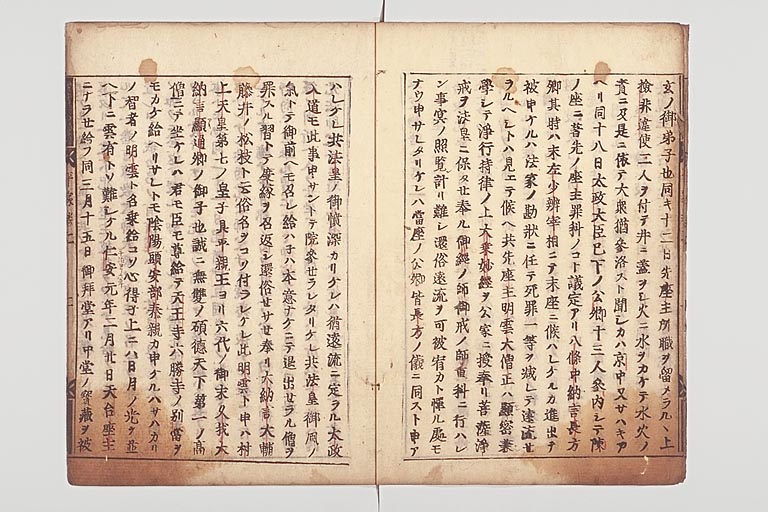 玄ノ御弟子也同キ十二日先座主所職ヲ留メラルヽ上
檢非違使二人ヲ付テ井ニ蓋ヲシ火ニ水ヲカケテ水火ノ
責ニ及是ニ依テ大衆猶參洛スト聞シカハ京中又サハキア
ヘリ同十八日太政大臣已下ノ公卿十三人參内シテ陣
ノ座ニ著先ノ座主罪科ノコト議定アリ八條中納言長方
卿其時ハ未左少辨宰相ニテ末座ニ候ハレケルカ進出テ
被申ケルハ法家ノ勘狀ニ任テ死罪一等ヲ減シテ遠流セ
ラルヘシトハ見エテ候ヘ共先座主明雲大僧正ハ顯密兼
學シテ淨行持律ノ上大乘妙經ヲ公家ニ授奉リ菩薩淨
戒ヲ法皇ニ保タセ奉ル御經ノ師御戒ノ師重科ニ行ハレ
ン事冥ノ照覽計リ難シ還俗遠流ヲ可被宥カト憚ル處モ
ナウ申サレタリケレハ當座ノ公卿皆長方ノ儀ニ同スト申ア
ハレケレ共法皇ノ御憤深カリケレハ猶遠流ニ定ラル太政
入道モ此事申サントテ院參セラレタリケレ共法皇御風ノ
氣トテ御前ヘモ召レ給ハ子ハ本意ナケニテ退出セラル僧ヲ
罪スル習トテ度緣ヲ召返シ還俗セサセ奉リ大納言大輔
藤井ノ松枝ト云俗名ヲコソ付ラレケレ此明雲ト申ハ村
上天皇第七ノ皇子具平親王ヨリ六代ノ御末久我大
納言顯通卿ノ御子也誠ニ無雙ノ碩德天下第一ノ高
僧ニテ坐ケレハ君モ臣モ尊給テ天王寺六勝寺ノ別當ヲ
モカケ給ヘリサレトモ陰陽頭安部泰親カ申ケルハサハカリ
ノ智者ノ明雲ト名乘給コソ心得子上ニハ日月ノ光ヲ並
ヘ下ニ雲有トソ難シケル仁安元年二月廿日天台座主
ニナラセ給フ同三月十五日御拜堂アリ中堂ノ寶藏ヲ被